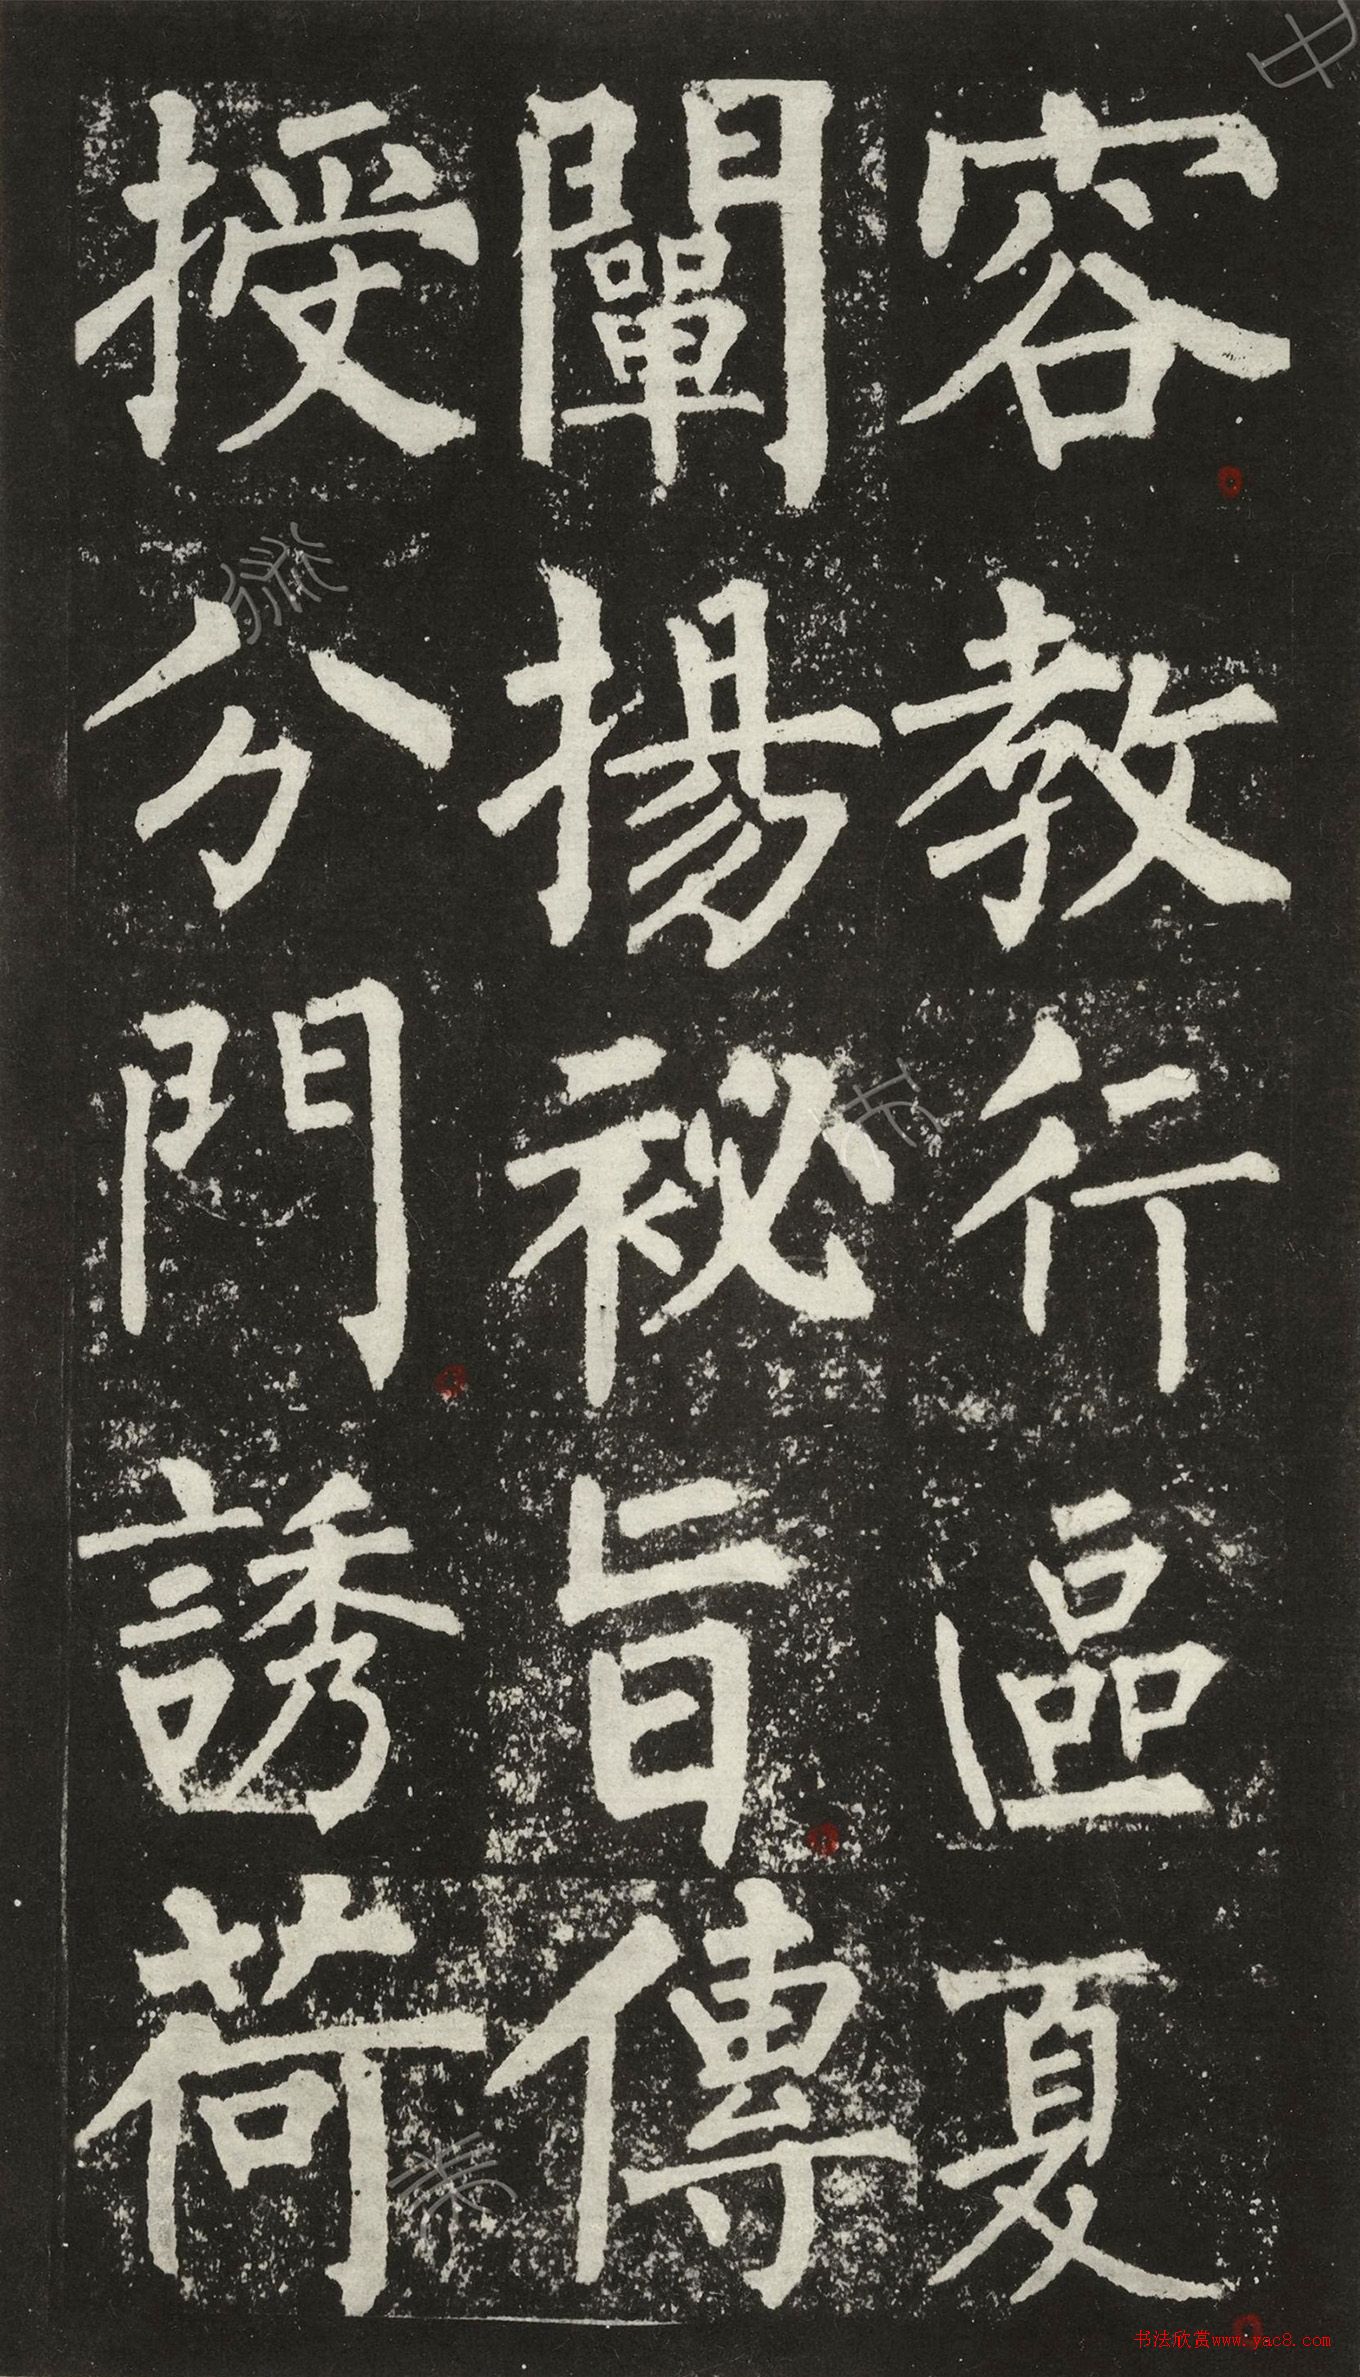 容教行區夏
闡揚祕旨傳
授分門誘荷
书法欣赏www.yac8.com